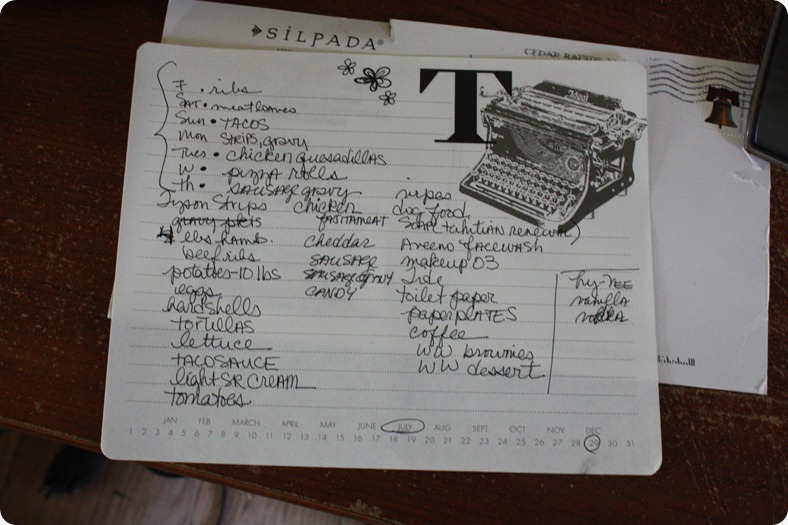 SILPADA®
CEDAR RAPIDS
T
F • ribs
SAT • meatloaves
Sun • TACOS
mon STRIPS, gravy
Tues • chicken quesadillas
W • pizza rolls
Th • SAUSAGE gravy
Tyson Strips
gravy pkts
4 lbs hamb.
beef ribs
potatoes-10 lbs
eggs
hardshells
tortillas
lettuce
TACO SAUCE
light SR CREAM
tomatoes
chicken
fajita meat
cheddar
SAUSAGE
SAUSAGE GRAVY
CANDY
wipes
dog food
SOAP (tahitian renewal)
Aveeno facewash
makeup 03
Tide
toilet paper
paper plates
coffee
WW brownies
WW dessert
hy-vee
vanilla
vodka
JAN FEB MARCH APRIL MAY JUNE JULY AUG SEPT OCT NOV DEC
1 2 3 4 5 6 7 8 9 10 11 12 13 14 15 16 17 18 19 20 21 22 23 24 25 26 27 28 29 30 31